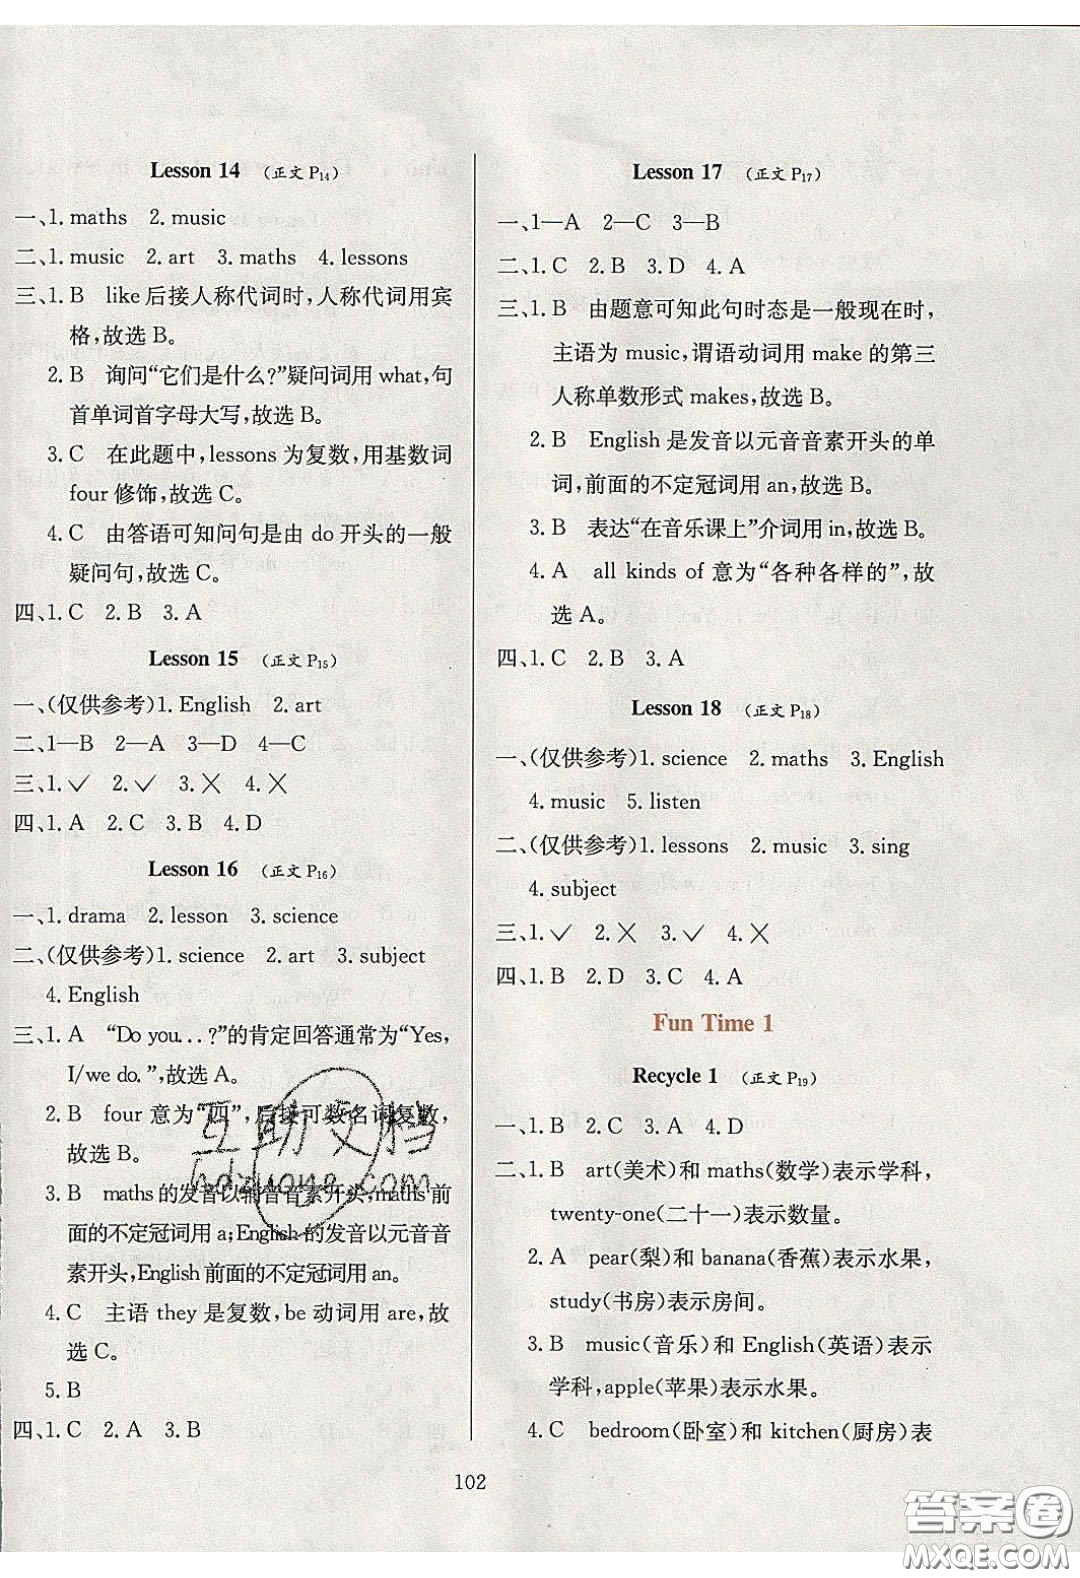 Lesson 14 (正文 P14)
一、1. maths 2. music
二、1. music 2. art 3. maths 4. lessons
三、1. B like后接人称代词时,人称代词用宾
格,故选 B。
2. B 询问“它们是什么?”疑问词用 what,句
首单词首字母大写,故选 B。
3. C 在此题中,lessons 为复数,用基数词
four 修饰,故选 C。
4. C 由答语可知问句是由 do 开头的一般
疑问句,故选 C。
四、1. C 2. B 3. A
Lesson 15 (正文 P15)
一、(仅供参考)1. English 2. art
二、1—B 2—A 3—D 4—C
三、1. ✓ 2. ✓ 3. ✗ 4. ✗
四、1. A 2. C 3. B 4. D
Lesson 16 (正文 P16)
一、1. drama 2. lesson 3. science
二、(仅供参考)1. science 2. art 3. subject
4. English
三、1. A “Do you...?”的肯定回答通常为“Yes,
I/we do.”,故选 A。
2. B four 意为“四”,后接可数名词复数,
故选 B。
3. B maths 的发音以辅音音素开头,maths 前
面的不定冠词用 a;English 的发音以元音音
素开头,English 前面的不定冠词用 an。
4. C 主语 they 是复数,be 动词用 are,故
选 C。
5. B
四、1. C 2. A 3. B
Lesson 17 (正文 P17)
一、1—A 2—C 3—B
二、1. C 2. B 3. D 4. A
三、1. B 由题意可知此句时态是一般现在时,
主语为 music,谓语动词用 make 的第三
人称单数形式 makes,故选 B。
2. B English 是发音以元音音素开头的单
词,前面的不定冠词用 an,故选 B。
3. B 表达“在音乐课上”介词用 in,故选 B。
4. A all kinds of 意为“各种各样的”,故
选 A。
四、1. C 2. B 3. A
Lesson 18 (正文 P18)
一、(仅供参考)1. science 2. maths 3. English
4. music 5. listen
二、(仅供参考)1. lessons 2. music 3. sing
4. subject
三、1. ✓ 2. ✗ 3. ✓ 4. ✗
四、1. B 2. D 3. C 4. A
Fun Time 1
Recycle 1 (正文 P19)
一、1. B 2. C 3. A 4. D
二、1. B art(美术)和 maths(数学)表示学科,
twenty-one(二十一)表示数量。
2. A pear(梨)和 banana(香蕉)表示水果,
study(书房)表示房间。
3. B music(音乐)和 English(英语)表示
学科,apple(苹果)表示水果。
4. C bedroom(卧室)和 kitchen(厨房)表
102
互助文档
hdzuone.com
答案卷
MXQE.COM